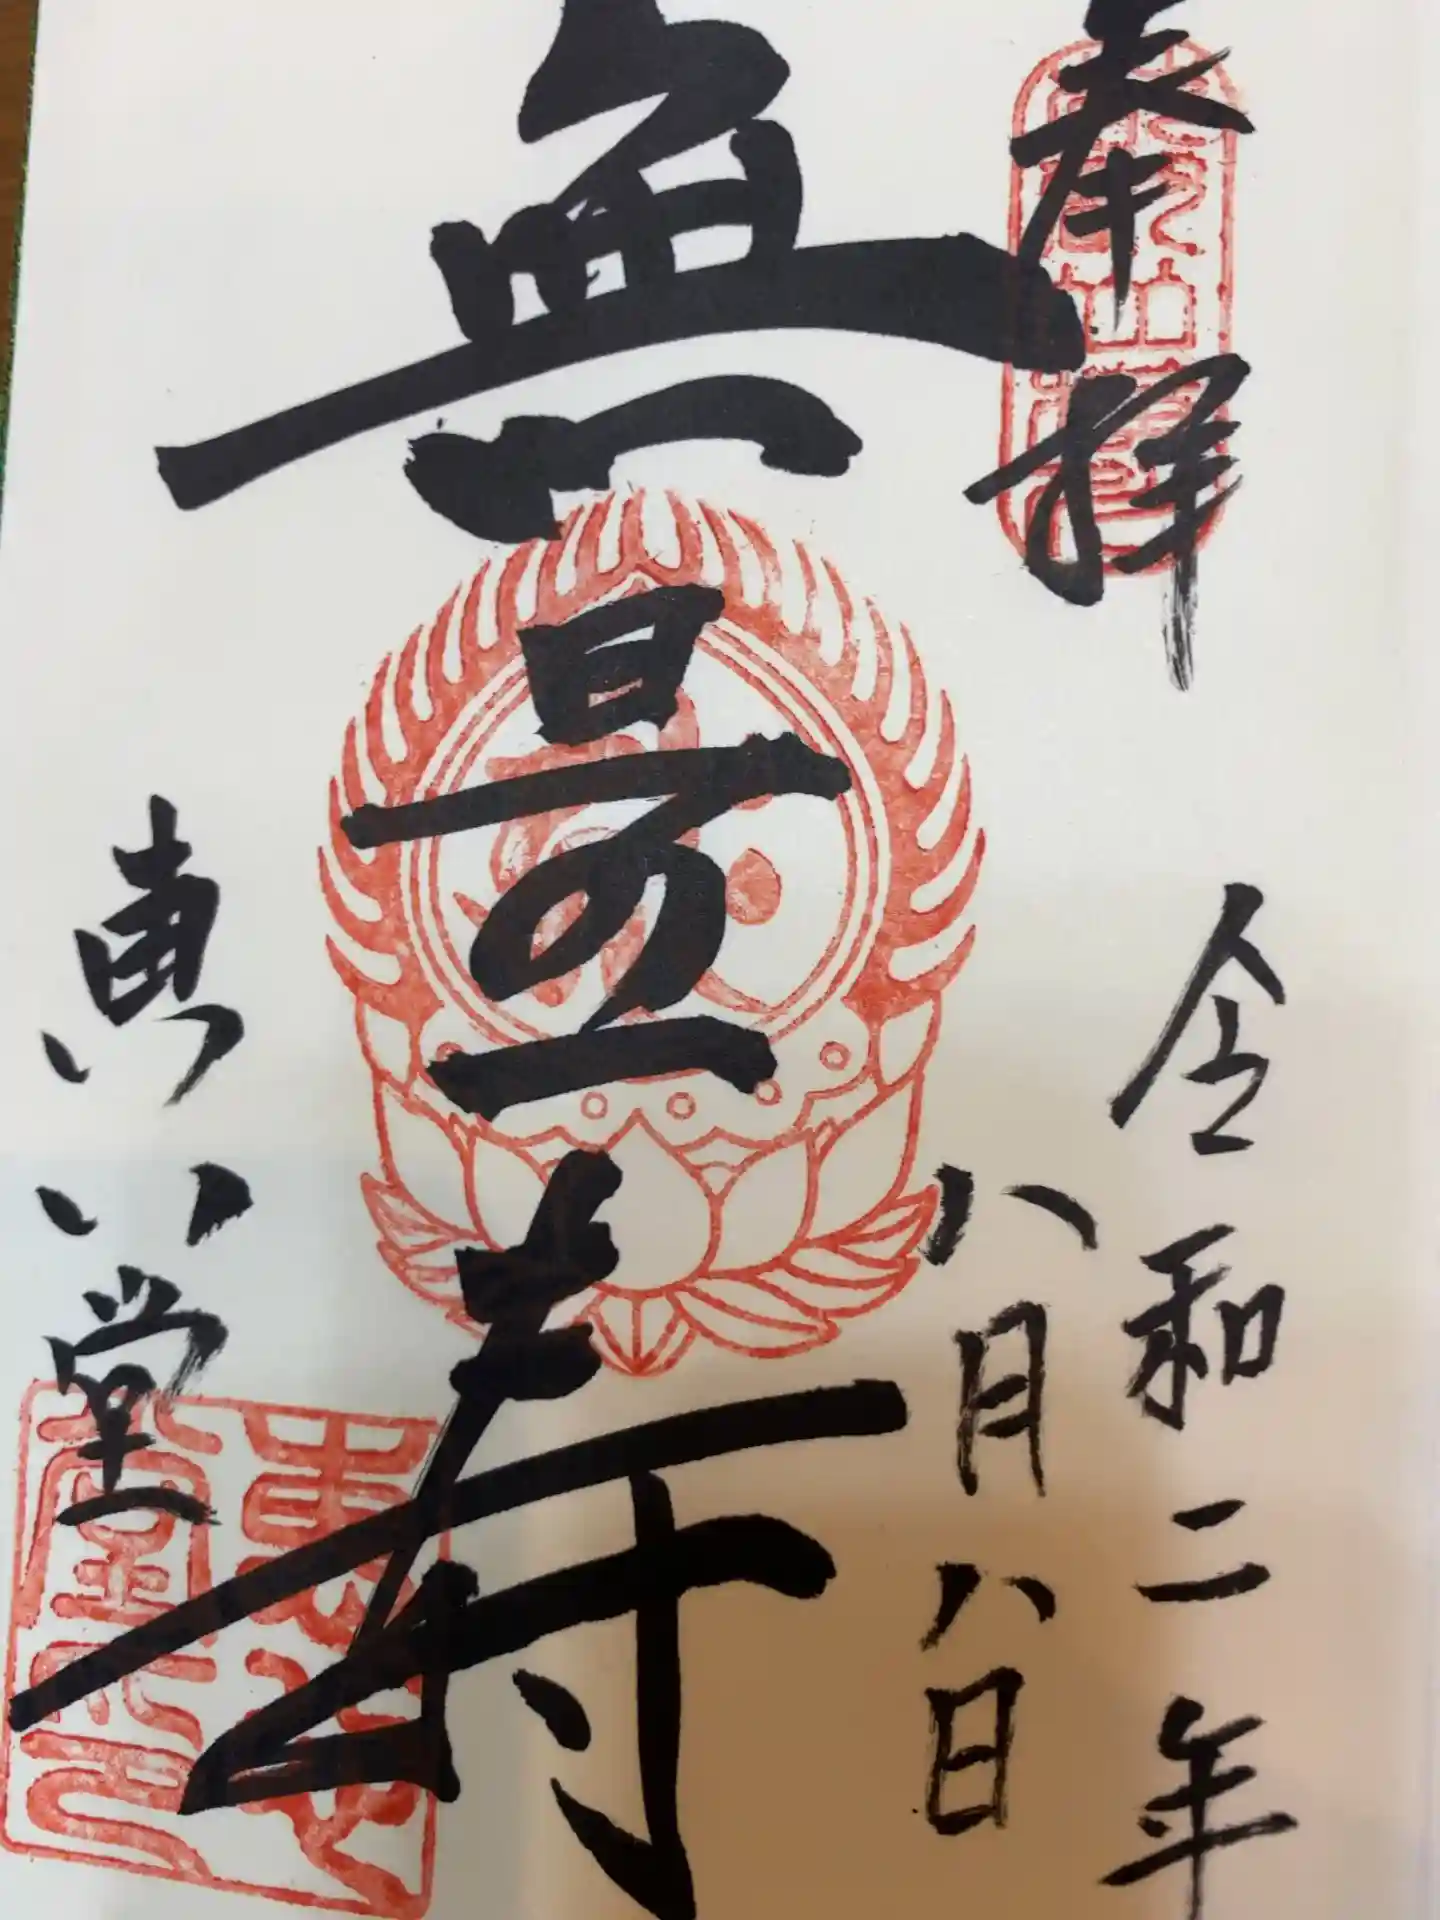 奉拝
令和二年
八月八日
無量寿
恵心堂
恵心堂印